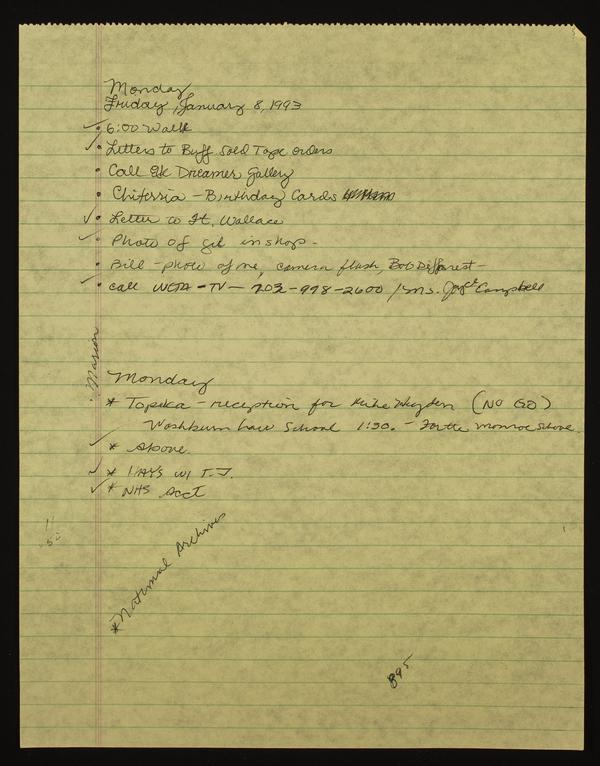 Monday
Friday, January 8, 1993
✓ • 6:00 Walk
✓ • Letters to Buff Sold Tape orders
• Call Elk Dreamer Gallery
• Chiferria - Birthday Cards
✓ • Letter to Ft. Wallace
✓ • Photo of girl in shop -
• Bill - photo of me, camera flash, Bob
✓ • call WETA - TV - 703-998-2600 / Ms. Campbell
Marion
Monday
* Topeka - reception for Mike (NO GO)
Washburn Law School 1:30. - For the Monroe School
✓ * Above
✓ * HAYS w/ T.J.
✓ * NHS Acct
11
50
* National Archives
895